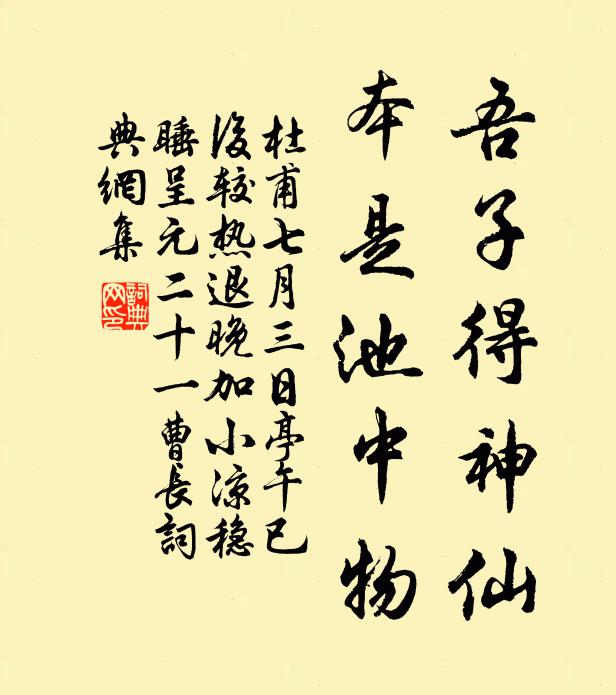 吾子得神仙
本是池中物
杜甫七月三日亭午已
後较热退晚加小凉稳
睡呈元二十一曹长詞
典網集
詞典
网印